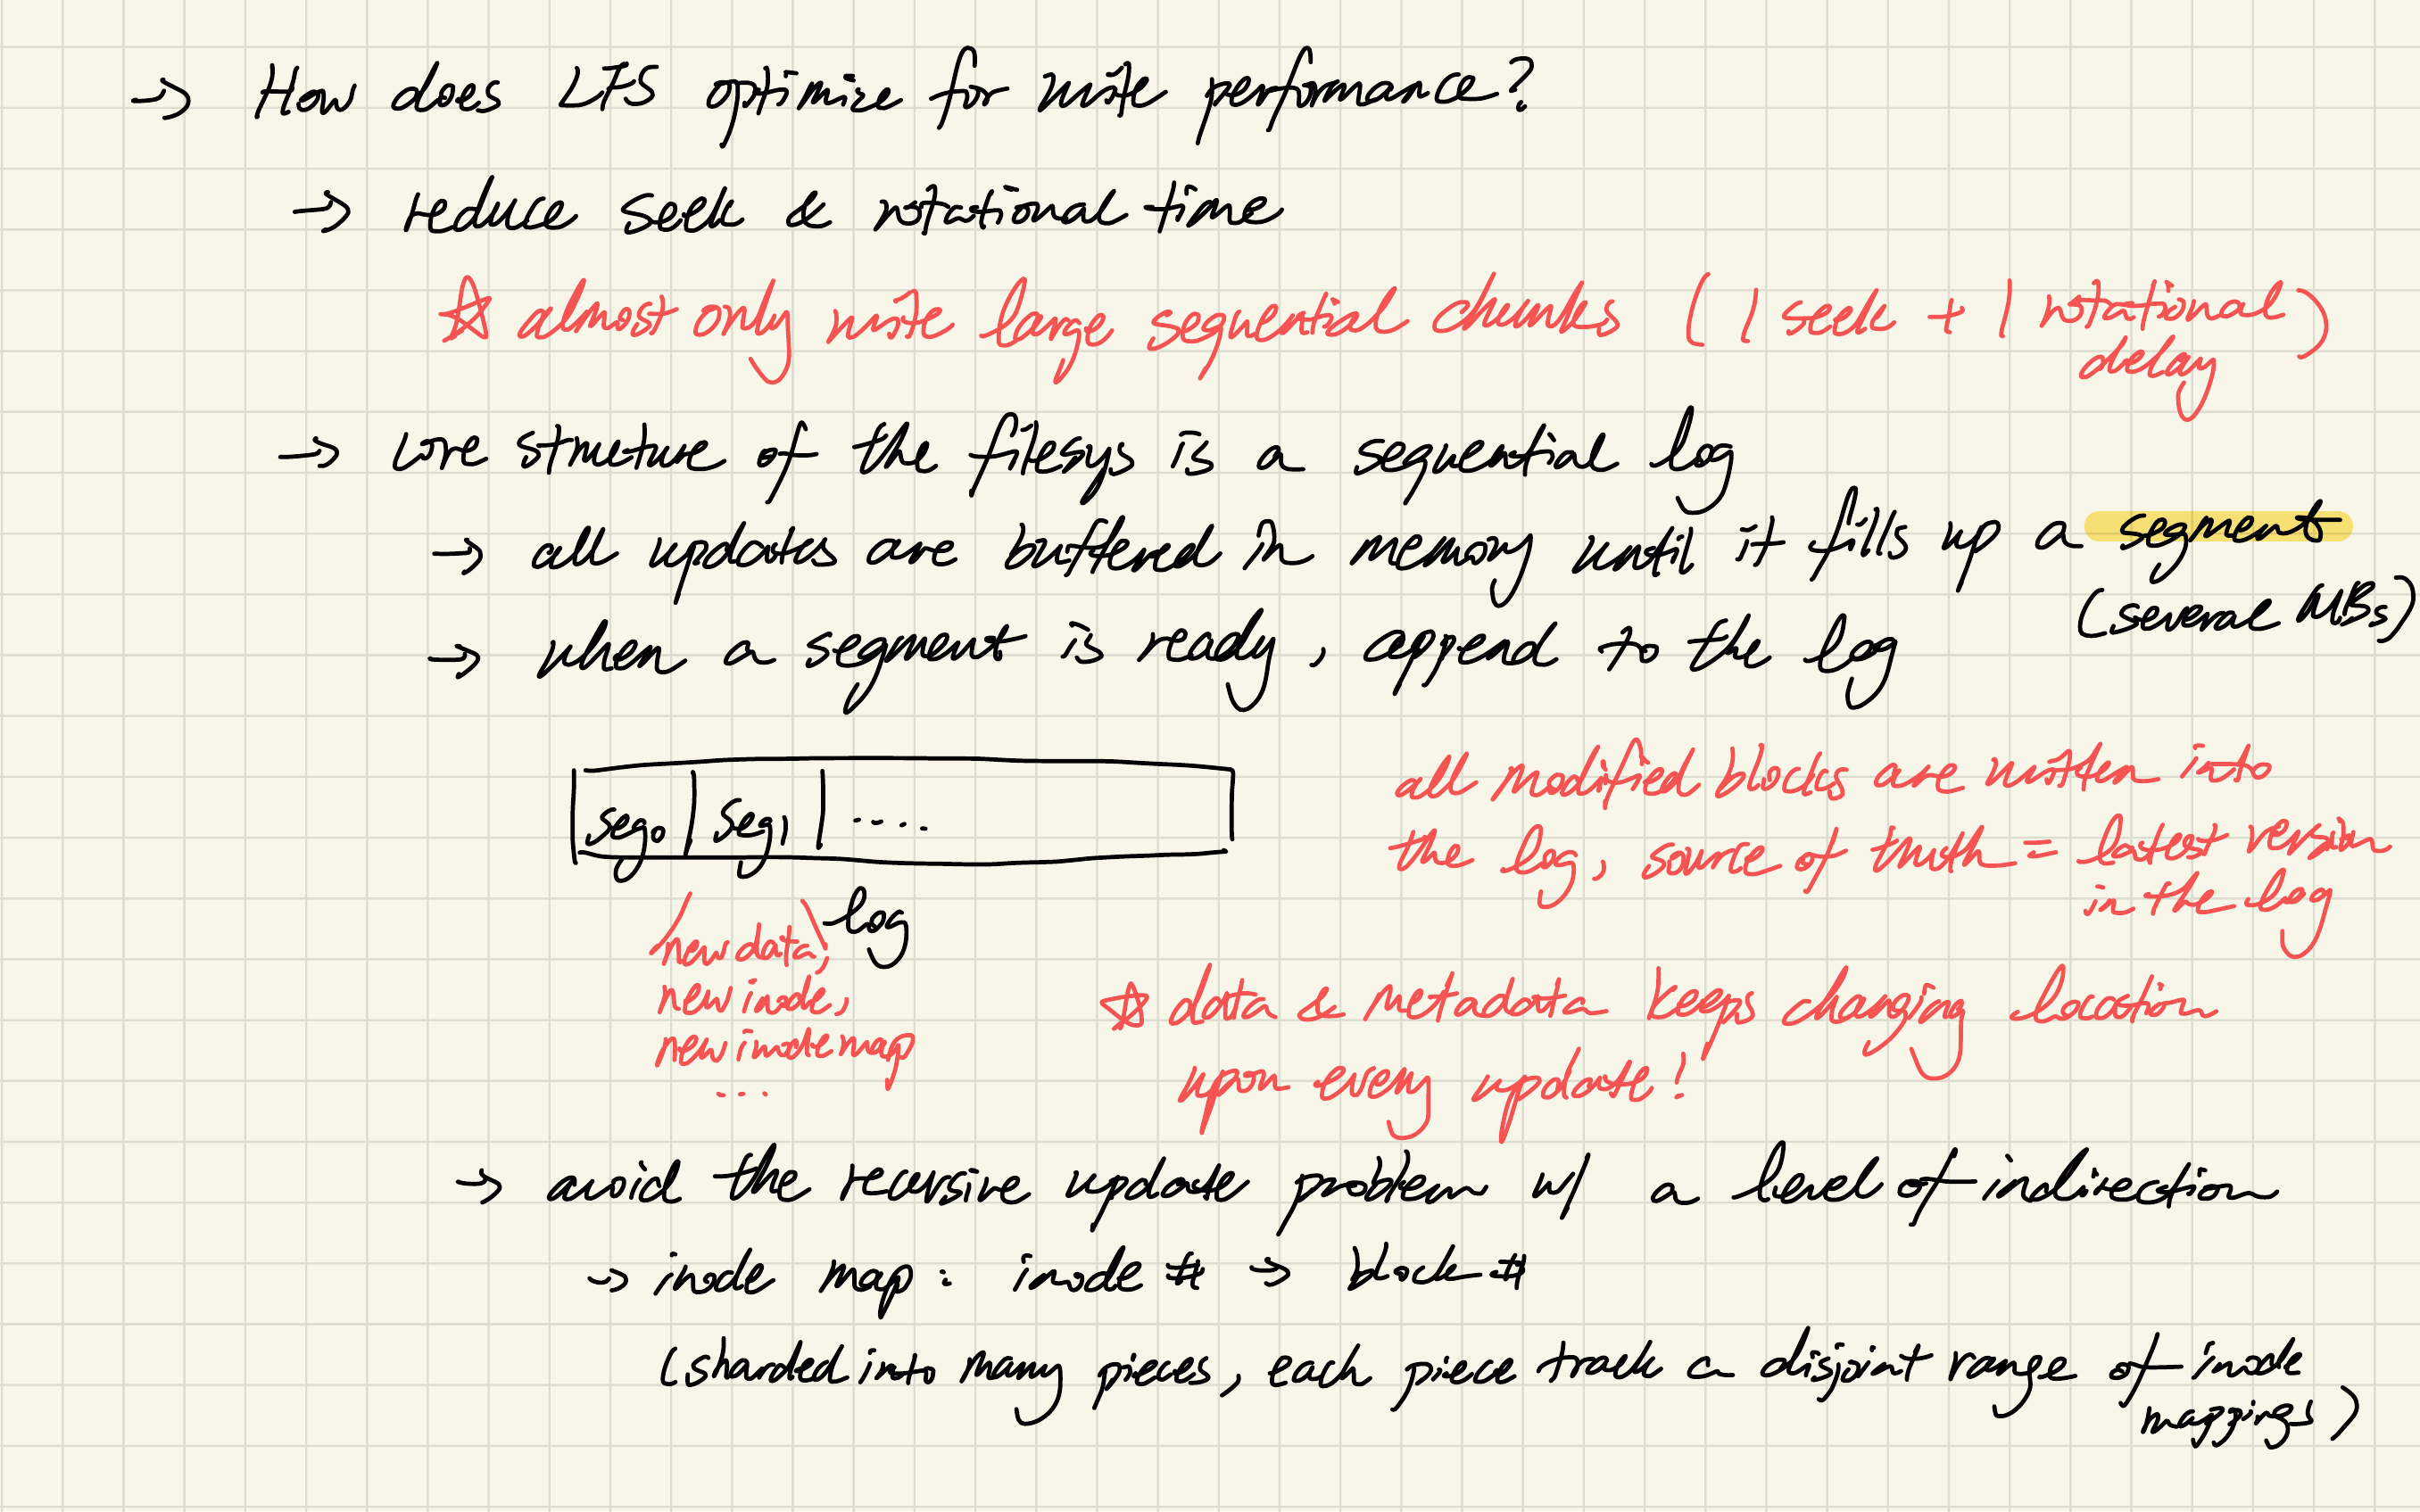 → How does LFS optimize for write performance?
→ reduce seek & rotational time
☆ almost only write large sequential chunks (1 seek + 1 rotational
delay)
→ core structure of the filesys is a sequential log
→ all updates are buffered in memory until it fills up a segment
(several MBs)
→ when a segment is ready, append to the log
seg0 | seg1 | ....
log
new data,
new inode,
new inode map
...
all modified blocks are written into
the log, source of truth = latest version
in the log
☆ data & metadata keeps changing location
upon every update!
→ avoid the recursive update problem w/ a level of indirection
→ inode map: inode # → block #
(sharded into many pieces, each piece track a disjoint range of inode
mappings)